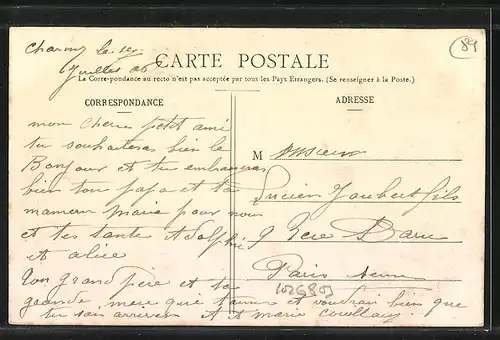 Charny le 1er
Juillet 06
CARTE POSTALE
La Correspondance au recto n'est pas acceptée par tous les Pays Etrangers. (Se renseigner à la Poste.)
CORRESPONDANCE
ADRESSE
mon cherie petit ami
tu souhaiteras bien le
Bonjour et tu embrasseras
bien ton papa et ta
maman marie pour nous
et tes tante Adolphi
et alice
ton grand père et ta
grande mere qui t'aime et voudrai bien que
tu sois arriver A A marie
M onsieur
Lucien Joubert fils
9 Rue Daru
Paris Seine
84